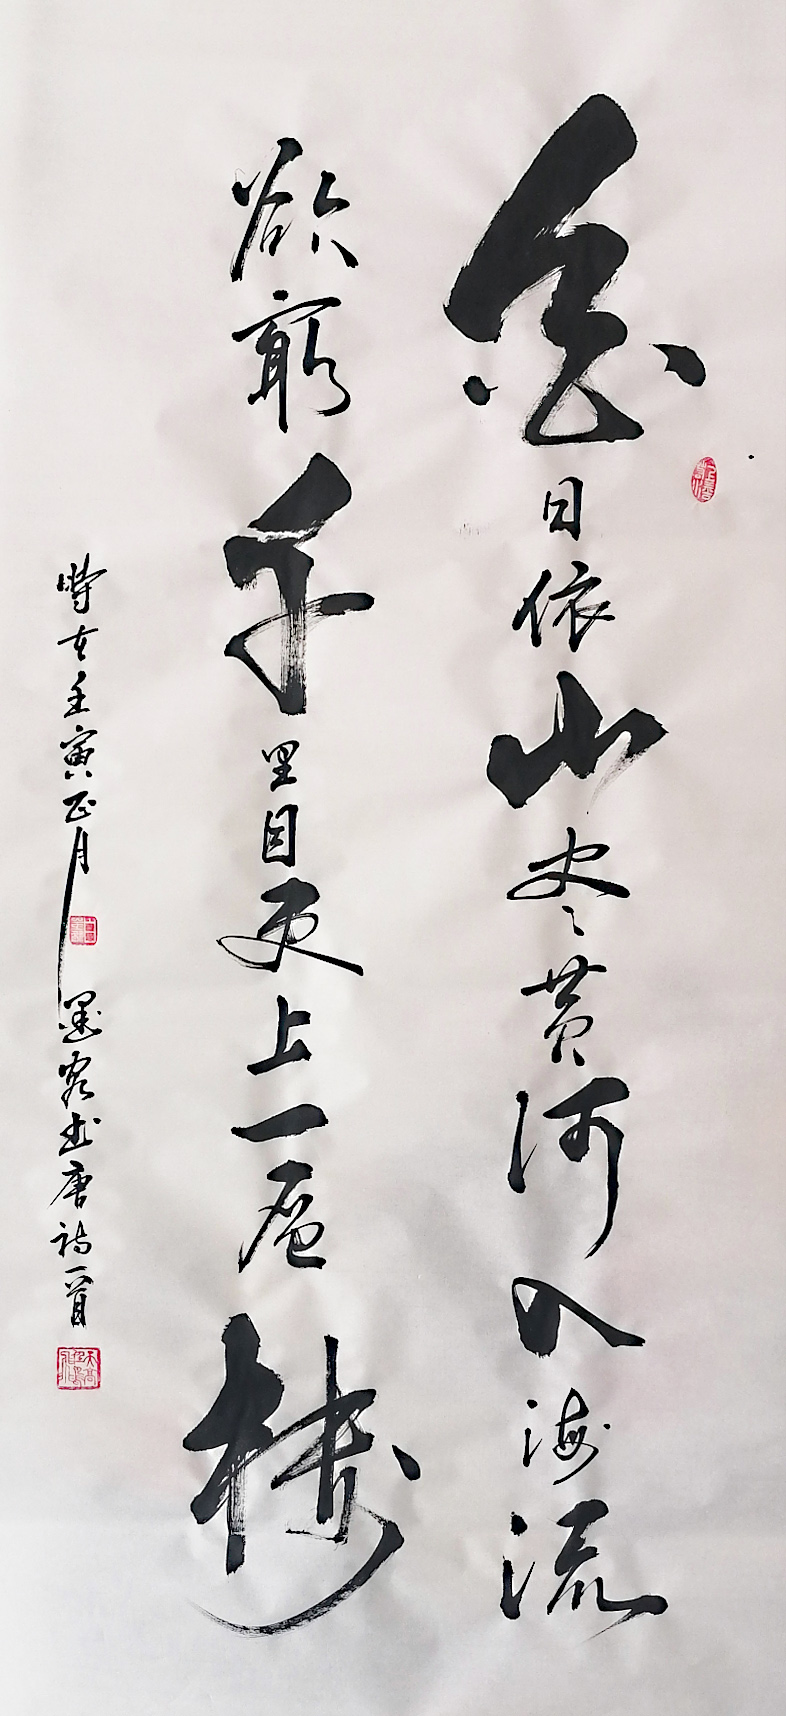 白日依山尽黄河入海流
欲窮千里目更上一層楼
時在壬寅正月 墨客书唐诗一首